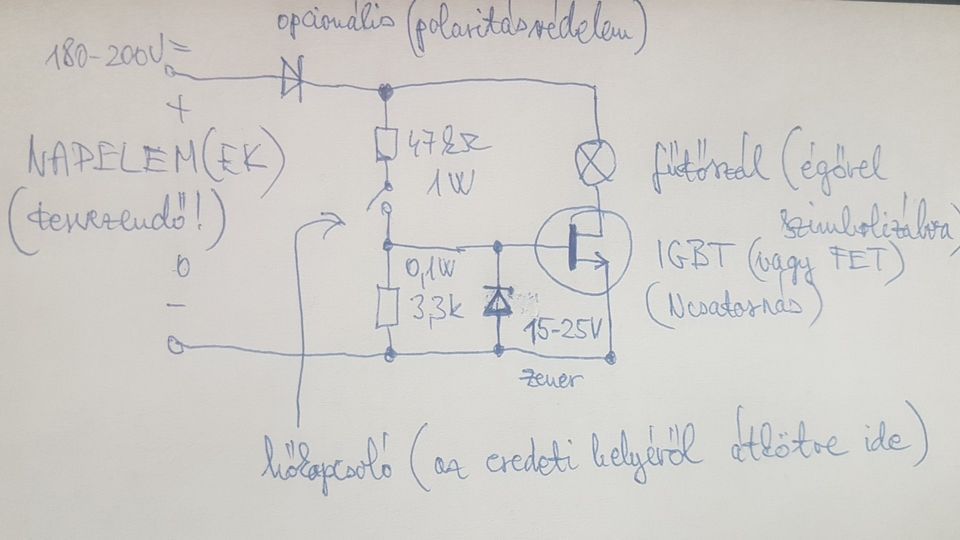 opcionális (polaritásvédelem)
180-200V=
+
NAPELEM(EK)
(tervezendő!)
-
47k
1W
0,1W
3,3k
15-25V
zener
fűtőszál (égővel
szimbolizálva)
IGBT (vagy FET)
(Ncsatornás)
hőkapcsoló (az eredeti helyéről átkötve ide)